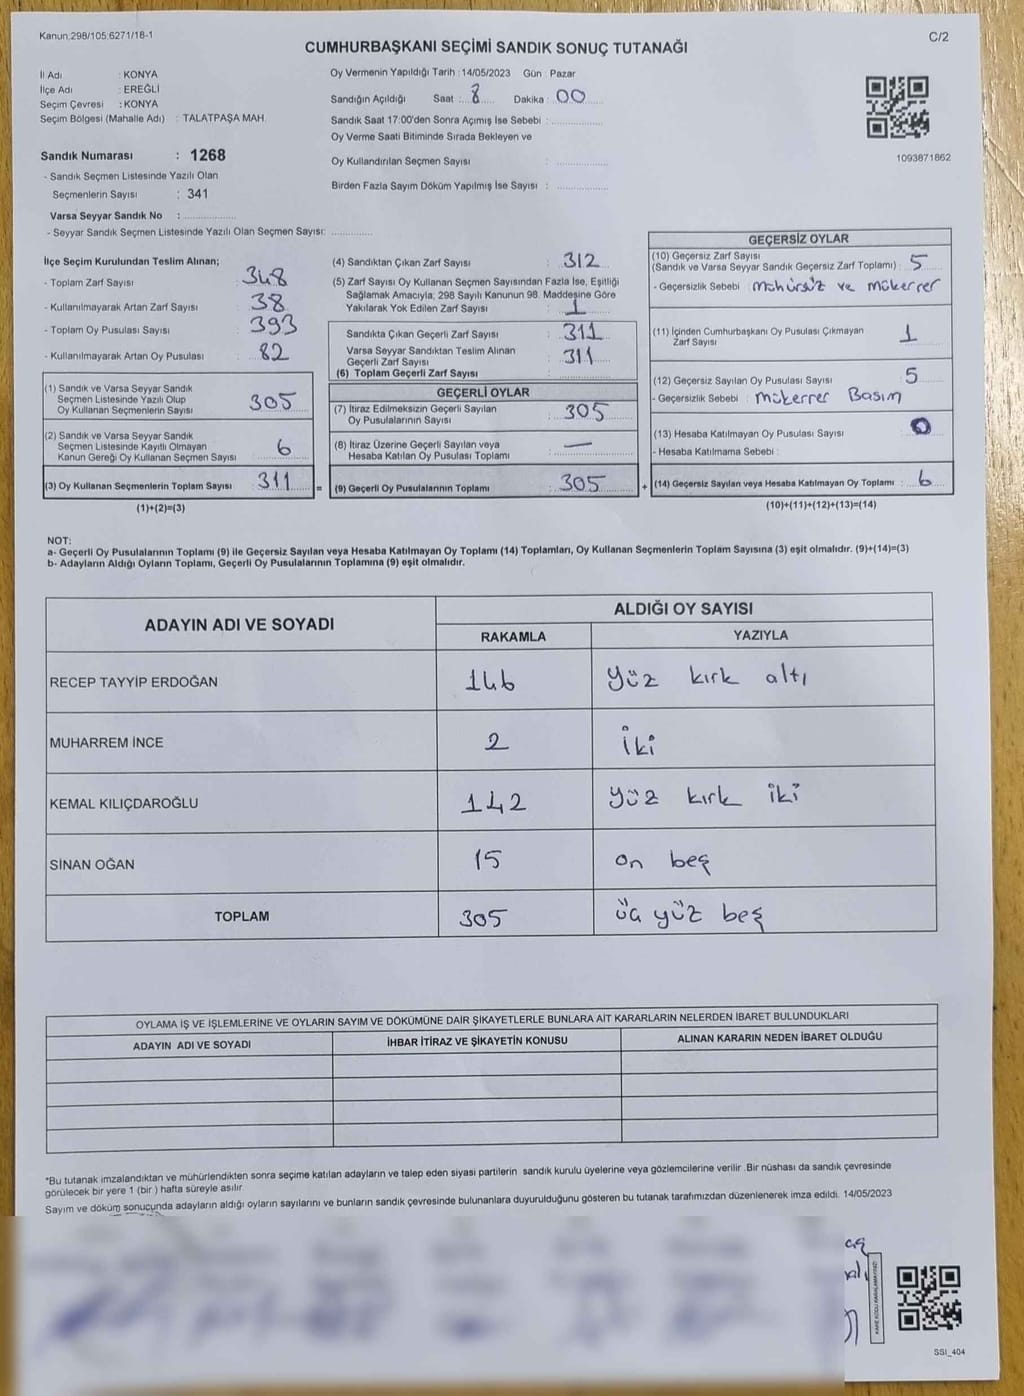 Kanun:298/105:6271/18-1
C/2
CUMHURBAŞKANI SEÇİMİ SANDIK SONUÇ TUTANAĞI
İl Adı : KONYA
İlçe Adı : EREĞLİ
Seçim Çevresi : KONYA
Seçim Bölgesi (Mahalle Adı) : TALATPAŞA MAH.
Sandık Numarası : 1268
- Sandık Seçmen Listesinde Yazılı Olan
Seçmenlerin Sayısı : 341
Varsa Seyyar Sandık No :
- Seyyar Sandık Seçmen Listesinde Yazılı Olan Seçmen Sayısı:
Oy Vermenin Yapıldığı Tarih : 14/05/2023 Gün : Pazar
Sandığın Açıldığı Saat : 8 Dakika : 00
Sandık Saat 17:00'den Sonra Açımış İse Sebebi :
Oy Verme Saati Bitiminde Sırada Bekleyen ve
Oy Kullandırılan Seçmen Sayısı :
Birden Fazla Sayım Döküm Yapılmış İse Sayısı :
1093871862
İlçe Seçim Kurulundan Teslim Alınan;
- Toplam Zarf Sayısı : 348
- Kullanılmayarak Artan Zarf Sayısı : 38
- Toplam Oy Pusulası Sayısı : 393
- Kullanılmayarak Artan Oy Pusulası : 82
(1) Sandık ve Varsa Seyyar Sandık
Seçmen Listesinde Yazılı Olup
Oy Kullanan Seçmenlerin Sayısı : 305
(2) Sandık ve Varsa Seyyar Sandık
Seçmen Listesinde Kayıtlı Olmayan
Kanun Gereği Oy Kullanan Seçmen Sayısı : 6
(3) Oy Kullanan Seçmenlerin Toplam Sayısı : 311 =
(1)+(2)=(3)
(4) Sandıktan Çıkan Zarf Sayısı : 312
(5) Zarf Sayısı Oy Kullanan Seçmen Sayısından Fazla İse, Eşitliği
Sağlamak Amacıyla; 298 Sayılı Kanunun 98. Maddesine Göre
Yakılarak Yok Edilen Zarf Sayısı : 1
Sandıkta Çıkan Geçerli Zarf Sayısı : 311
Varsa Seyyar Sandıktan Teslim Alınan
Geçerli Zarf Sayısı : 311
(6) Toplam Geçerli Zarf Sayısı :
GEÇERLİ OYLAR
(7) İtiraz Edilmeksizin Geçerli Sayılan
Oy Pusulalarının Sayısı : 305
(8) İtiraz Üzerine Geçerli Sayılan veya
Hesaba Katılan Oy Pusulası Toplamı : —
(9) Geçerli Oy Pusulalarının Toplamı : 305 +
GEÇERSİZ OYLAR
(10) Geçersiz Zarf Sayısı
(Sandık ve Varsa Seyyar Sandık Geçersiz Zarf Toplamı) : 5
- Geçersizlik Sebebi : Mühürsüz ve mükerrer
(11) İçinden Cumhurbaşkanı Oy Pusulası Çıkmayan
Zarf Sayısı : 1
(12) Geçersiz Sayılan Oy Pusulası Sayısı : 5
- Geçersizlik Sebebi : Mükerrer Basım
(13) Hesaba Katılmayan Oy Pusulası Sayısı : 0
- Hesaba Katılmama Sebebi :
(14) Geçersiz Sayılan veya Hesaba Katılmayan Oy Toplamı : 6
(10)+(11)+(12)+(13)=(14)
NOT:
a- Geçerli Oy Pusulalarının Toplamı (9) ile Geçersiz Sayılan veya Hesaba Katılmayan Oy Toplamı (14) Toplamları, Oy Kullanan Seçmenlerin Toplam Sayısına (3) eşit olmalıdır. (9)+(14)=(3)
b- Adayların Aldığı Oyların Toplamı, Geçerli Oy Pusulalarının Toplamına (9) eşit olmalıdır.
ADAYIN ADI VE SOYADI
ALDIĞI OY SAYISI
RAKAMLA YAZIYLA
RECEP TAYYİP ERDOĞAN 146 yüz kırk altı
MUHARREM İNCE 2 iki
KEMAL KILIÇDAROĞLU 142 yüz kırk iki
SİNAN OĞAN 15 on beş
TOPLAM 305 üç yüz beş
OYLAMA İŞ VE İŞLEMLERİNE VE OYLARIN SAYIM VE DÖKÜMÜNE DAİR ŞİKAYETLERLE BUNLARA AİT KARARLARIN NELERDEN İBARET BULUNDUKLARI
ADAYIN ADI VE SOYADI İHBAR İTİRAZ VE ŞİKAYETİN KONUSU ALINAN KARARIN NEDEN İBARET OLDUĞU
*Bu tutanak imzalandıktan ve mühürlendikten sonra seçime katılan adayların ve talep eden siyasi partilerin sandık kurulu üyelerine veya gözlemcilerine verilir .Bir nüshası da sandık çevresinde
görülecek bir yere 1 (bir ) hafta süreyle asılır.
Sayım ve döküm sonucunda adayların aldığı oyların sayılarını ve bunların sandık çevresinde bulunanlara duyurulduğunu gösteren bu tutanak tarafımızdan düzenlenerek imza edildi. 14/05/2023
KARE KODU KARALAMAYINIZ!
SSI_404